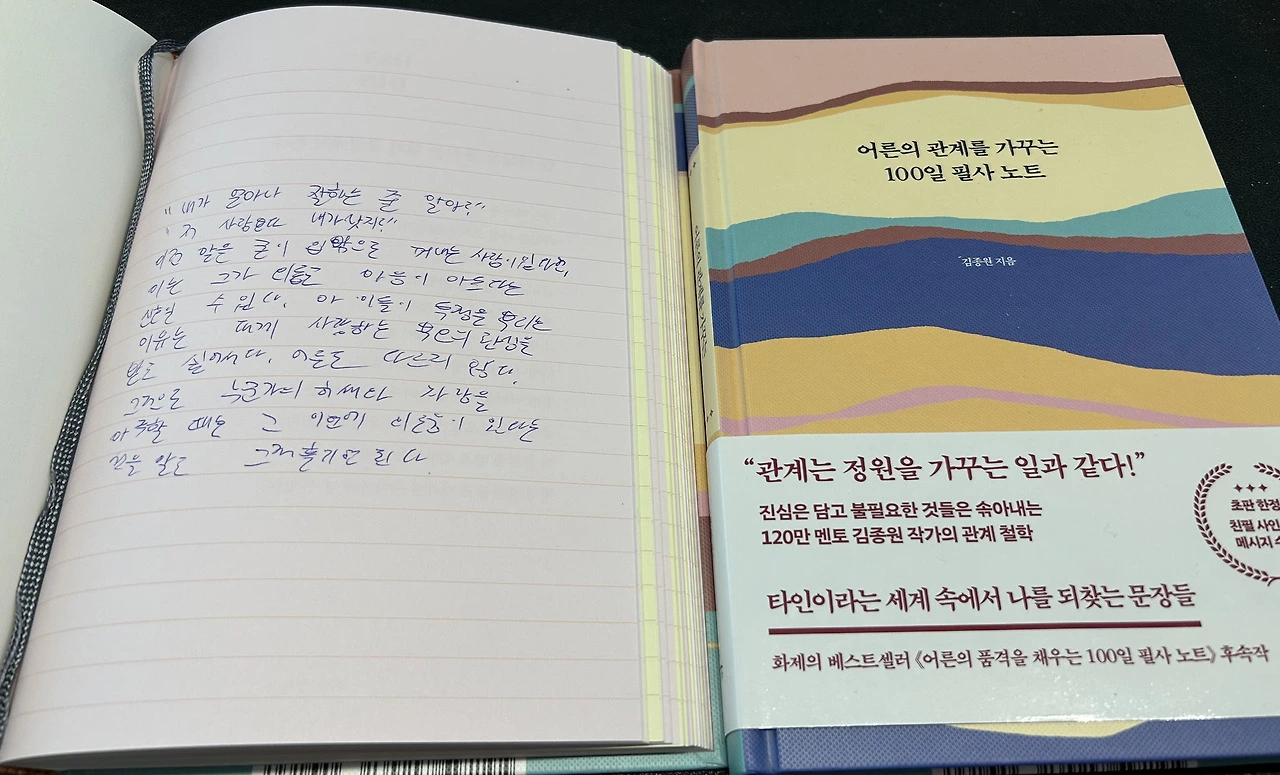 "내가 얼마나 잘하는 줄 알아?"
"저 사람보다 내가 낫지!"
이런 말을 굳이 입 밖으로 꺼내는 사람이 있다면,
이는 그가 마음이 아프다는
신호일 수 있다. 아이들이 투정을 부리는
이유는 대개 사랑하는 부모의 관심을
받고 싶어서다. 어른도 다르지 않다.
그러므로 누군가의 허세나 자랑을
마주할 때는 그 이면에 이 있다는
것을 알고 그저 흘리면 된다
어른의 관계를 가꾸는
100일 필사 노트
김종원 지음
"관계는 정원을 가꾸는 일과 같다!"
진심은 담고 불필요한 것들은 솎아내는
120만 멘토 김종원 작가의 관계 철학
타인이라는 세계 속에서 나를 되찾는 문장들
화제의 베스트셀러 《어른의 품격을 채우는 100일 필사 노트》 후속작
초판 한정
친필 사인
메시지